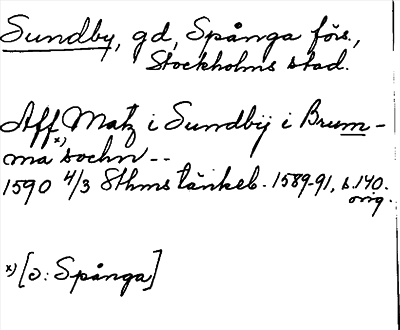 Sundby, gd, Spånga förs.,
Stockholms stad.
Aff Matz i Sundbÿ i Brum-
ma x) sochn --
1590 4/3 Sthms tänkeb. 1589-91, s. 140.
orig.
x) [ɔ: Spånga]